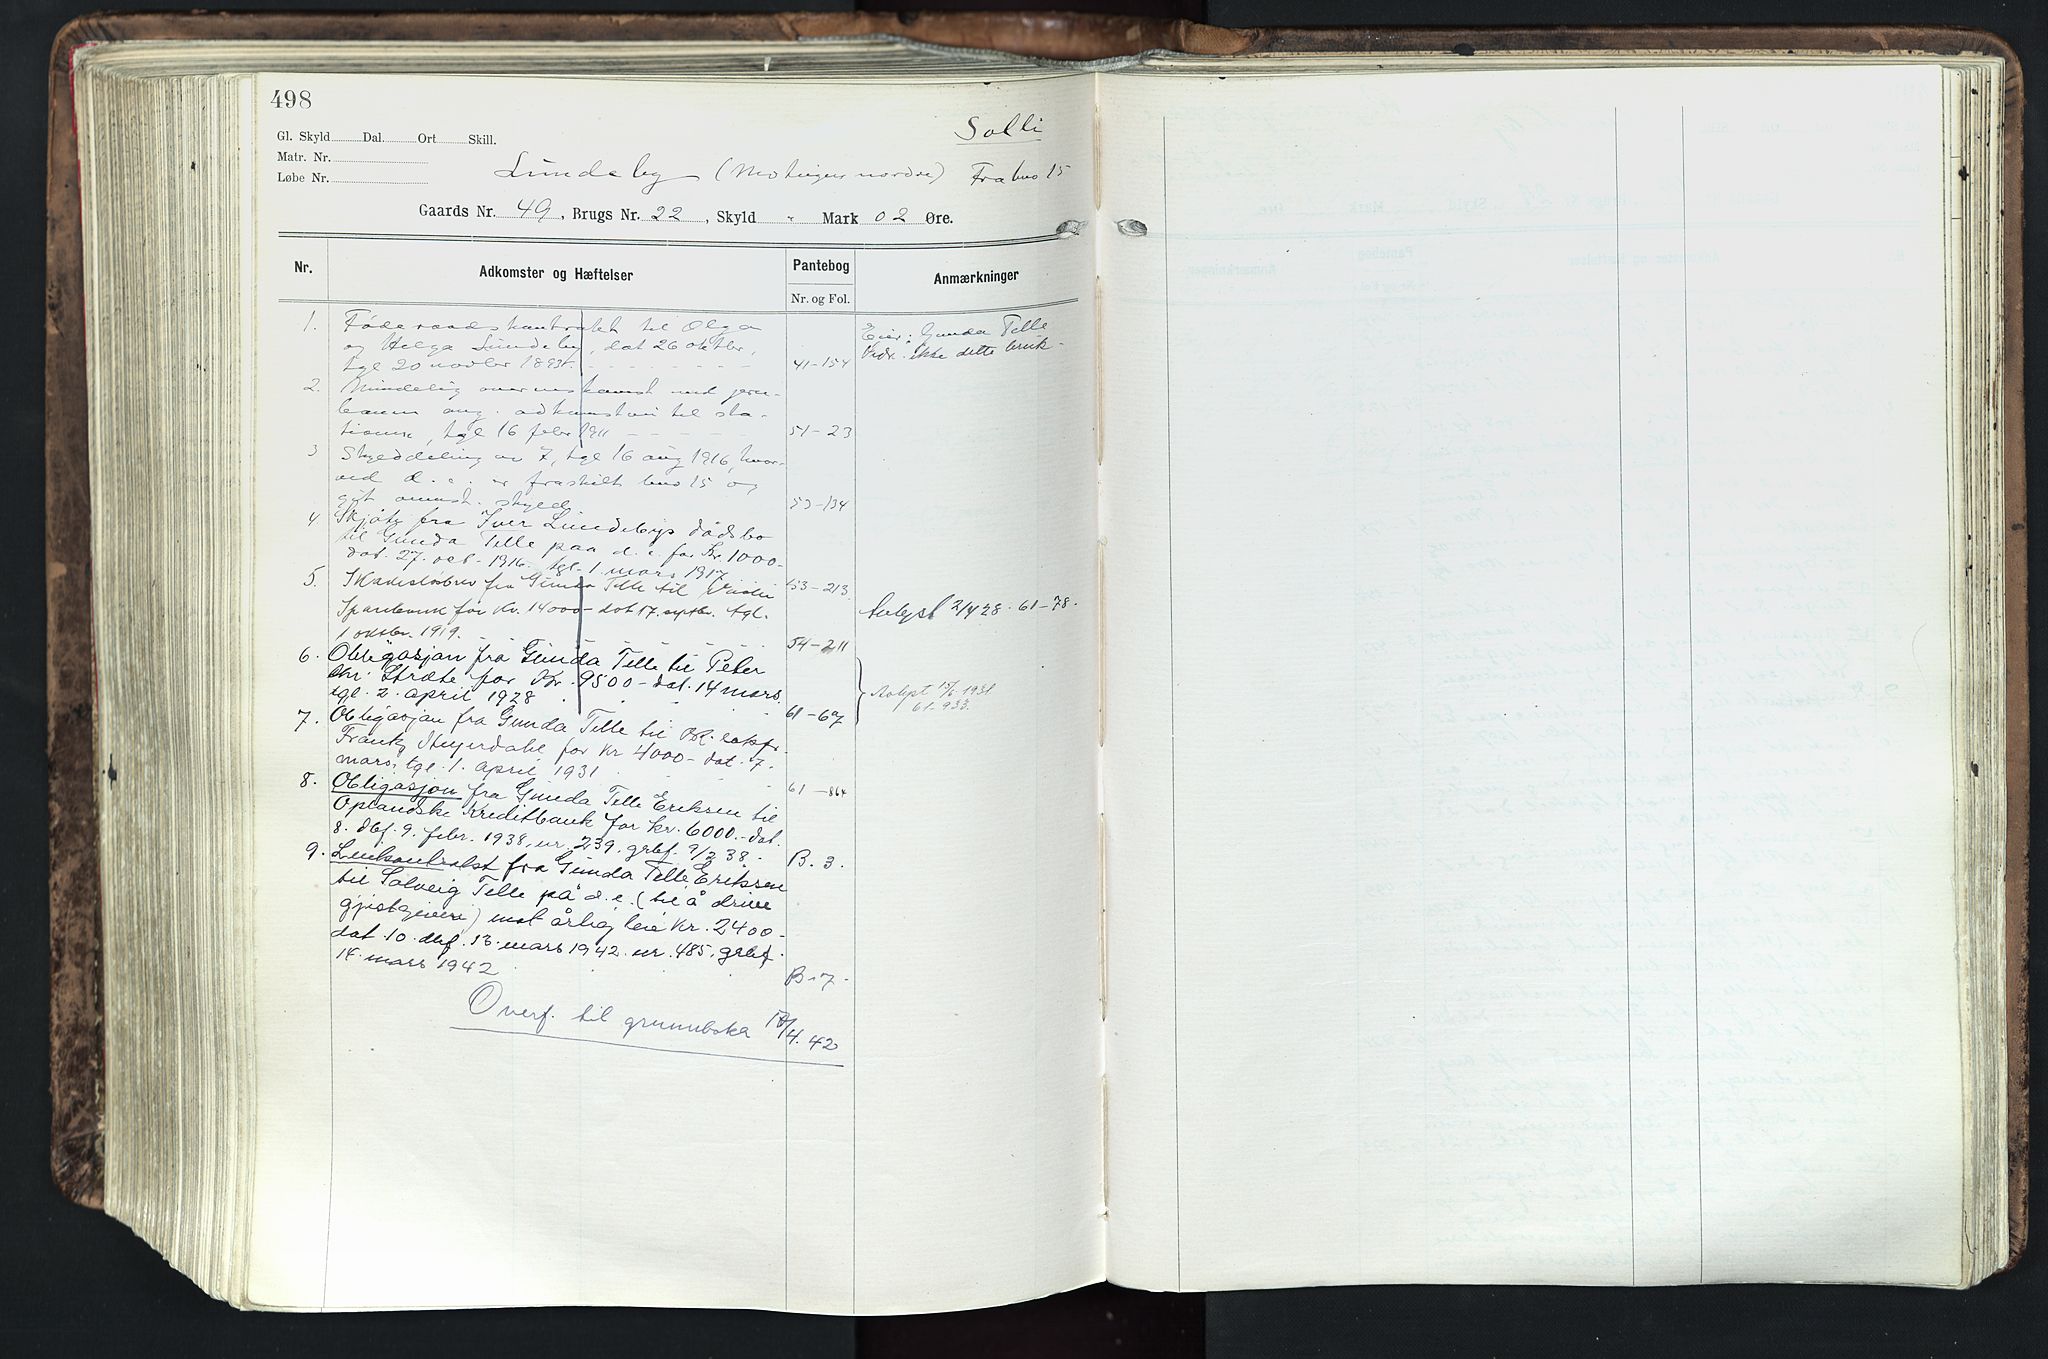 498
Gl. Skyld Dal. Ort Skill.
Matr. Nr.
Løbe Nr.
Solli
Lundeby (Motingen nordre) Fra bno 15
Gaards Nr. 49, Brugs Nr. 22, Skyld " Mark 02 Øre.
Nr. Adkomster og Hæftelser Pantebog Anmærkninger
Nr. og Fol.
1. Føderaadskontrakt til Olga
og Helga Lundeby, dat 26 oktbr,
tgl 20 novbr 1893. 41-154
Eier: Gunda Telle
Vedr. ikke dette bruk-
2. Mindelig overenskomst med jern-
banen ang. adkomsten til sta-
tionen, tgl 16 febr 1911 51-23
3 Skylddeling av 7, tgl 16 aug 1916, hvor-
ved d. e. er fraskilt bno 15 og
git ommst. skyld 53-134
4 Skjøte fra Iver Lundebys dødsbo
til Gunda Telle paa d. e. for Kr. 1000-
dat. 27. oct. 1916. tgl. 1 mars 1917 53-213
5. Skadesløsbrev fra Gunda Telle til
Sparebank for Kr. 14000- dat 17. septbr. tgl.
1 oktbr. 1919. 54-211
Avlyst 2/4 28. 61-78.
6. Obligasjon fra Gunda Telle til Peter
Chr. Stræte for Kr. 9500- dat. 14 mars
tgl. 2. april 1928 61-67
Avlyst 15/6 1931
61-933.
7. Obligasjon fra Gunda Telle til
for Kr 4000- dat. 7.
mars, tgl. 1. april 1931 61-864
8. Obligasjon fra Gunda Telle Eriksen til
Oplandske Kreditbank for kr. 6000.- dat.
8. dbf. 9. febr. 1938, nr. 239, grbf. 9/2 38.- B. 3.
9. Leiekontrakt fra Gunda Telle Eriksen
til Solveig Telle på d. e. (til å drive
gjestgiveri) mot årlig leie Kr. 2400-
dat. 10. dbf. 13. mars 1942. nr. 485, grbf.
14. mars 1942 B-7-
Overf. til grunnboka 17/4. 42